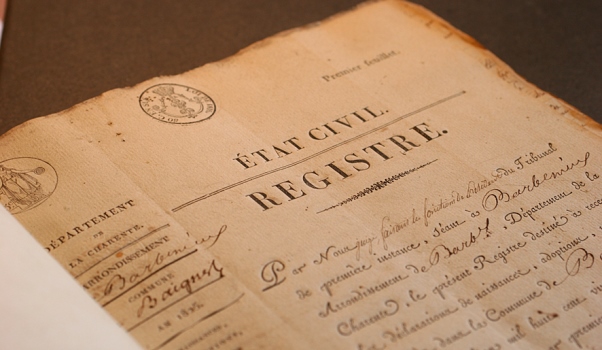 Premier feuillet.
ÉTAT CIVIL.
REGISTRE.
DÉPARTEMENT
DE
LA CHARENTE.
ARRONDISSEMENT
Barbezieux
COMMUNE
Baignes
AN 18
Par Nous juge faisant les fonctions de du Tribunal
de première instance, séant à Barbezieux
Arrondissement de Barb.x, Département de la
Charente, le présent Registre destiné à rece
déclarations de naissance, adoptions,
dans la Commune de B
mil huit cent